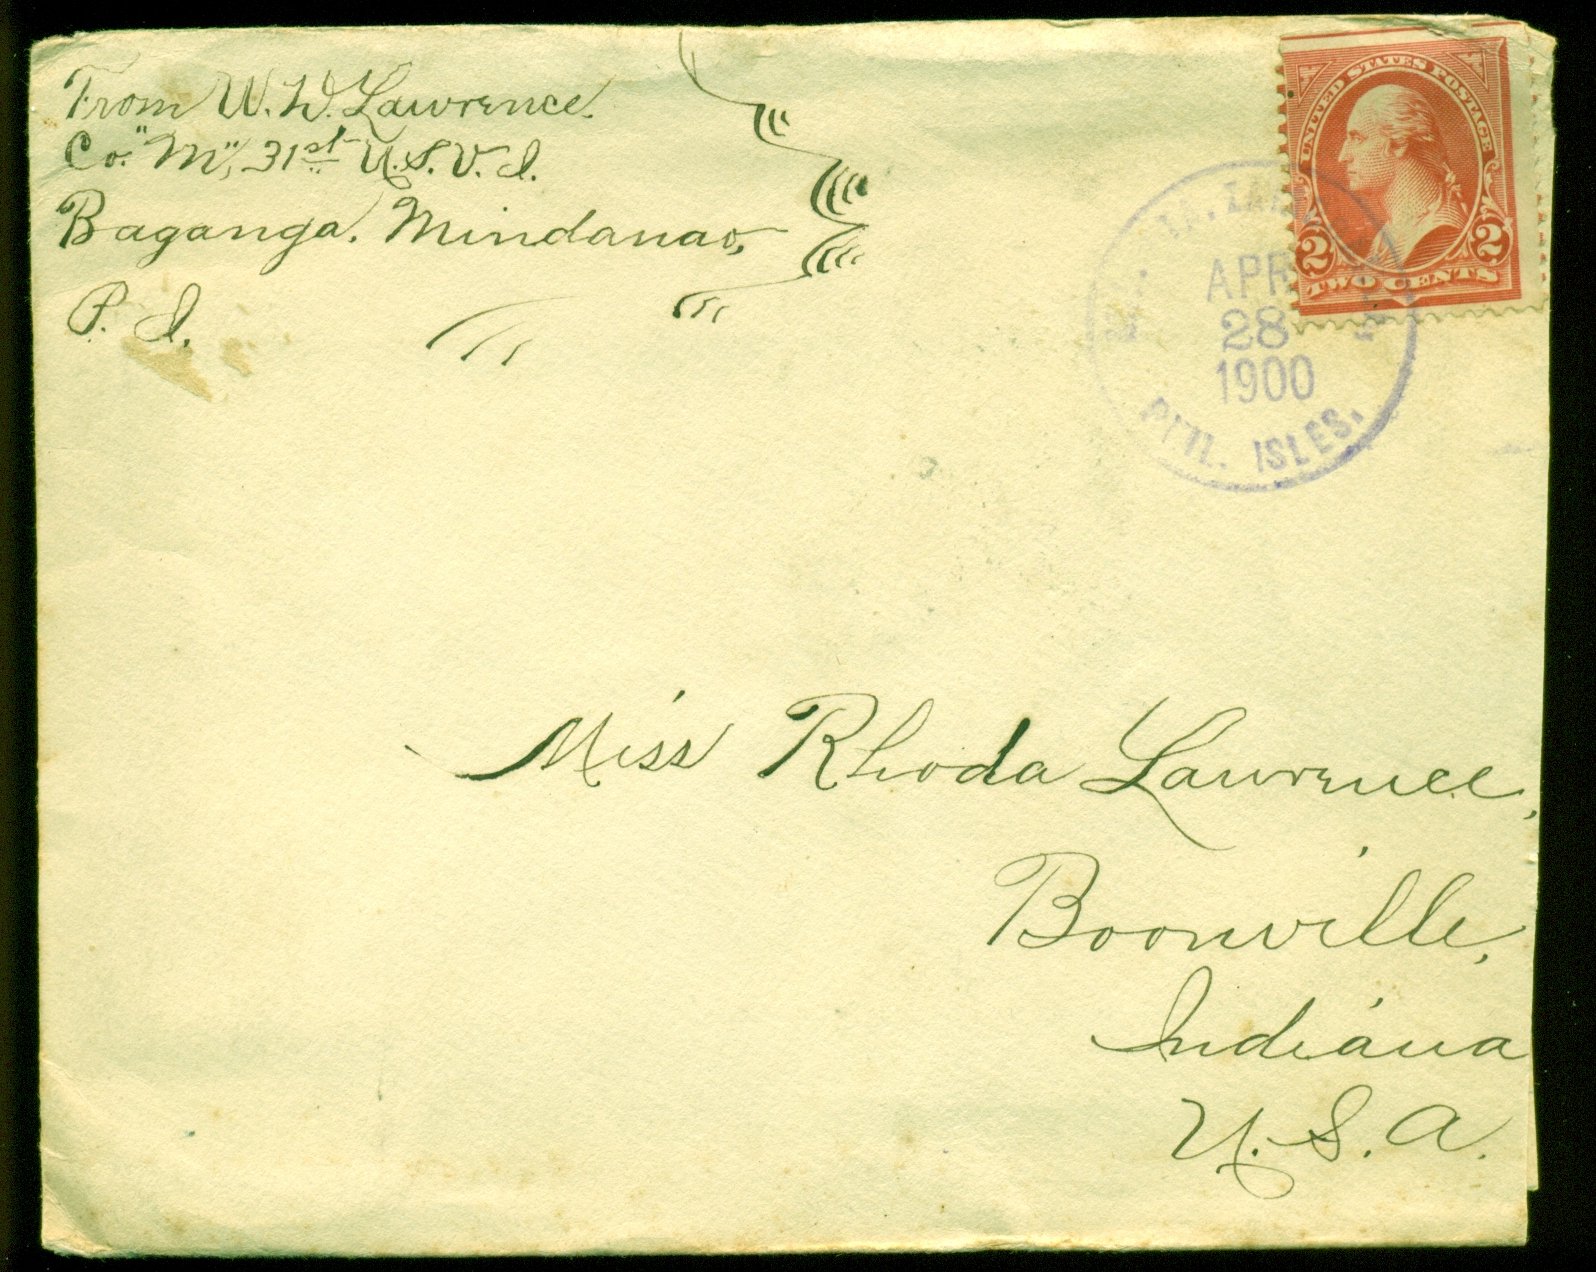 From W. W. Lawrence.
Co. "M", 31st U. S. V. I.
Baganga, Mindanao,
P. I.
UNITED STATES POSTAGE
2 2
TWO CENTS
APR
28
1900
PHIL. ISLES.
Miss Rhoda Lawrence,
Boonville,
Indiana
U. S. A.